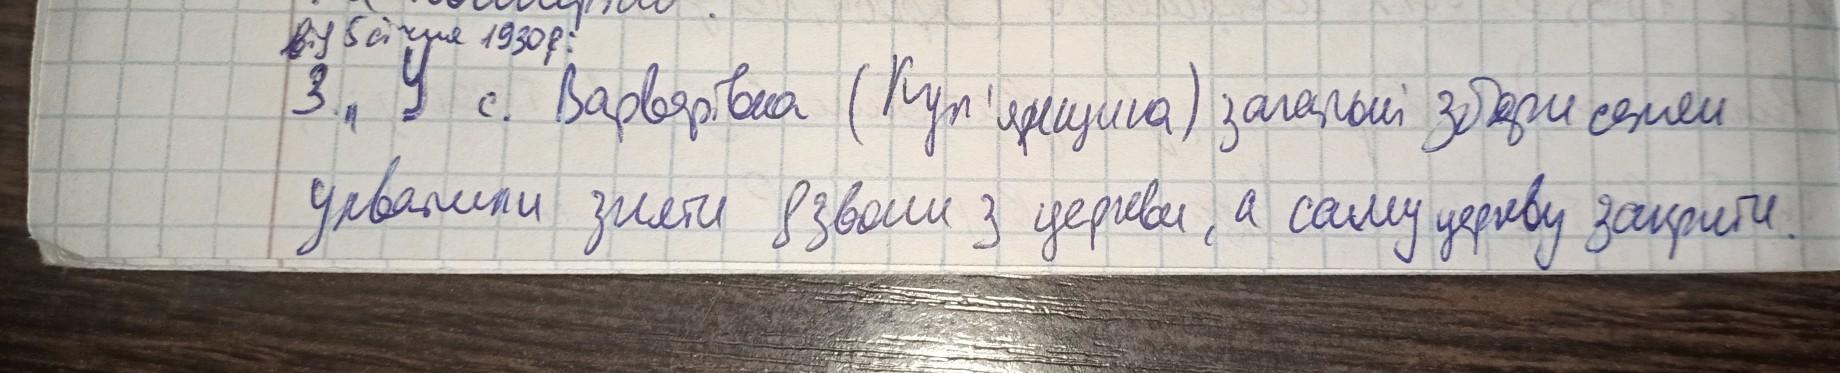 від 5 січня 1930 р:
3. „У с. Варварівка (Куп'янщина) загальні збори селян
ухвалили зняти дзвони з церкви, а саму церкву закрити.